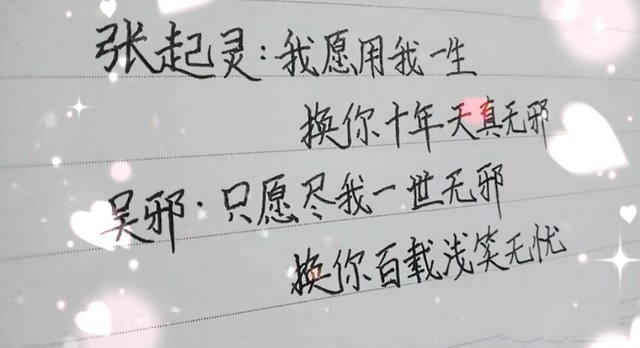 张起灵：我愿用我一生
换你十年天真无邪
吴邪·只愿尽我一世无邪
换你百载浅笑无忧